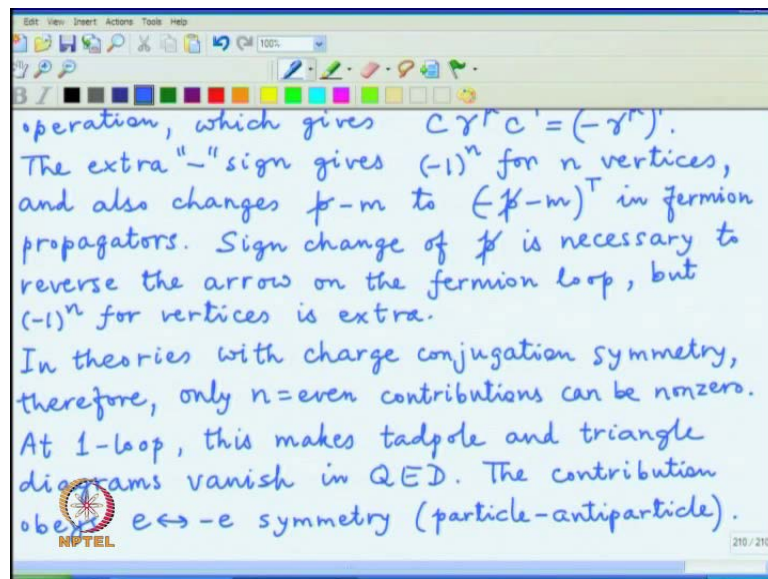 Edit View Insert Actions Tools Help
100%
B I
operation, which gives C γ^μ C^-1 = (-γ^μ)^T.
The extra "-" sign gives (-1)^n for n vertices,
and also changes p̸-m to (-p̸-m)^T in fermion
propagators. Sign change of p̸ is necessary to
reverse the arrow on the fermion loop, but
(-1)^n for vertices is extra.
In theories with charge conjugation symmetry,
therefore, only n=even contributions can be nonzero.
At 1-loop, this makes tadpole and triangle
diagrams vanish in QED. The contribution
obeys e↔-e symmetry (particle-antiparticle).
NPTEL
210 / 210